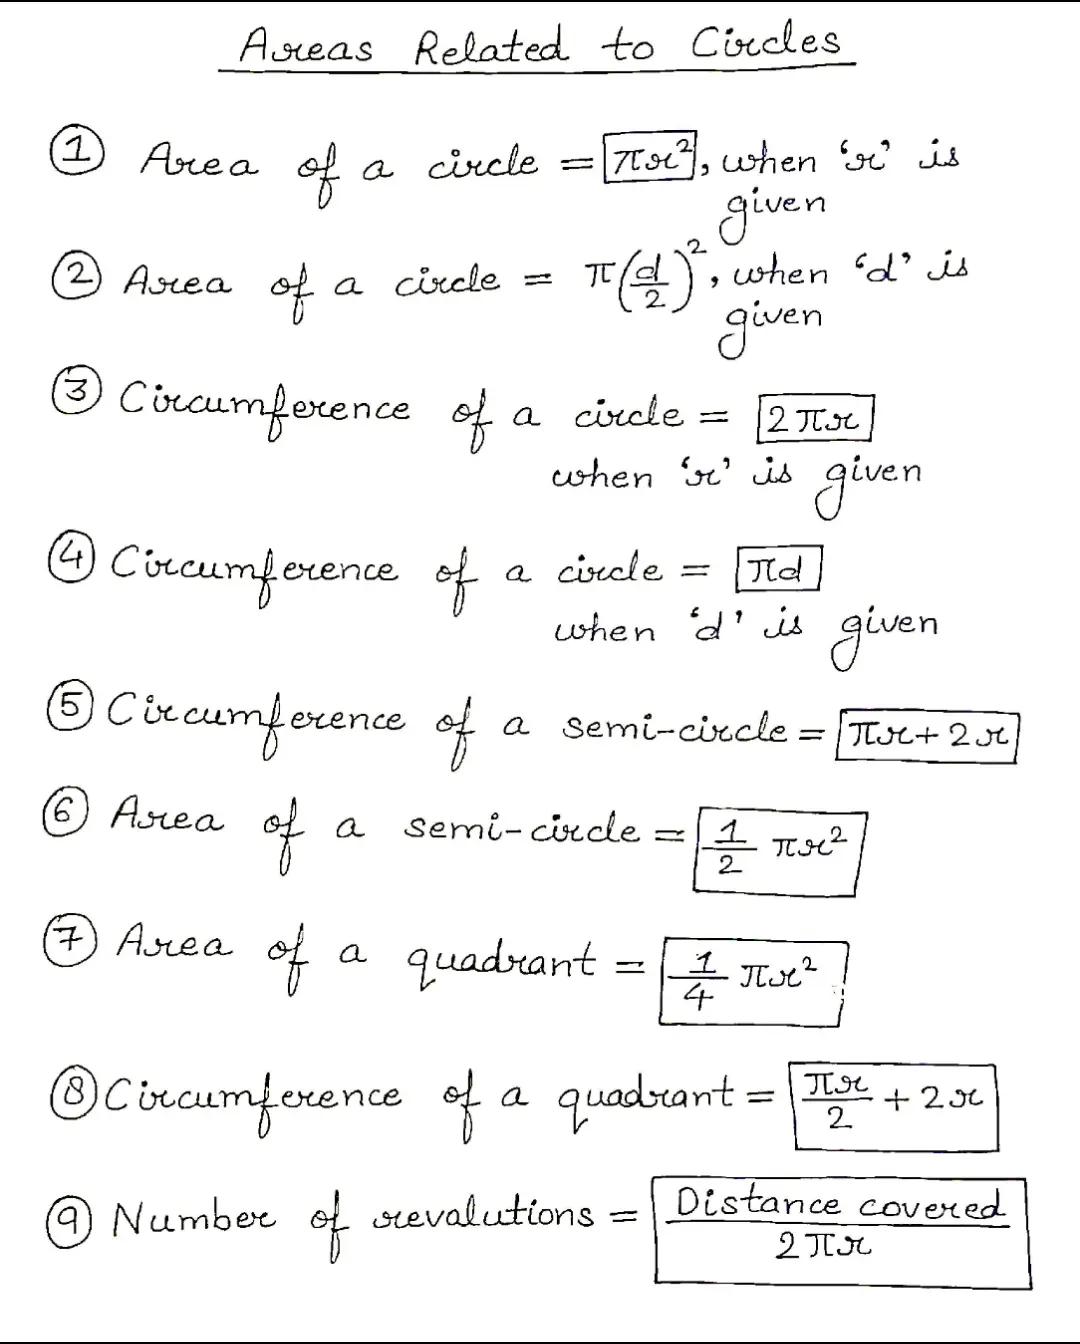 Areas Related to Circles
① Area of a circle = πr², when 'r' is
given
② Area of a circle = π(d/2)², when 'd' is
given
③ Circumference of a circle = 2πr
when 'r' is given
④ Circumference of a circle = πd
when 'd' is given
⑤ Circumference of a semi-circle = πr + 2r
⑥ Area of a semi-circle = 1/2 πr²
⑦ Area of a quadrant = 1/4 πr²
⑧ Circumference of a quadrant = πr/2 + 2r
⑨ Number of revalutions = Distance covered / 2πr